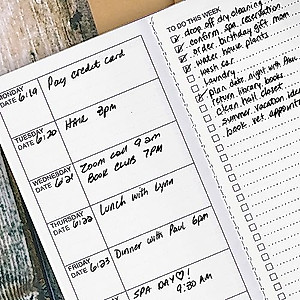 MONDAY
DATE 6/19
Pay credit card
TUESDAY
DATE 6/20
HAIR 3pm
WEDNESDAY
DATE 6/21
Zoom call 9am
BOOK CLUB 7PM
THURSDAY
DATE 6/22
Lunch with Lynn
FRIDAY
DATE 6/23
Dinner with Paul 6pm
SPA DAY♡!
9:30 AM
TO DO THIS WEEK
drop off dry cleaning
confirm spa reservation
order birthday gift mom
water house plants
wash car
laundry
plan date night with Paul
return library books
clean hall closet
summer vacation ideas
book vet appointment